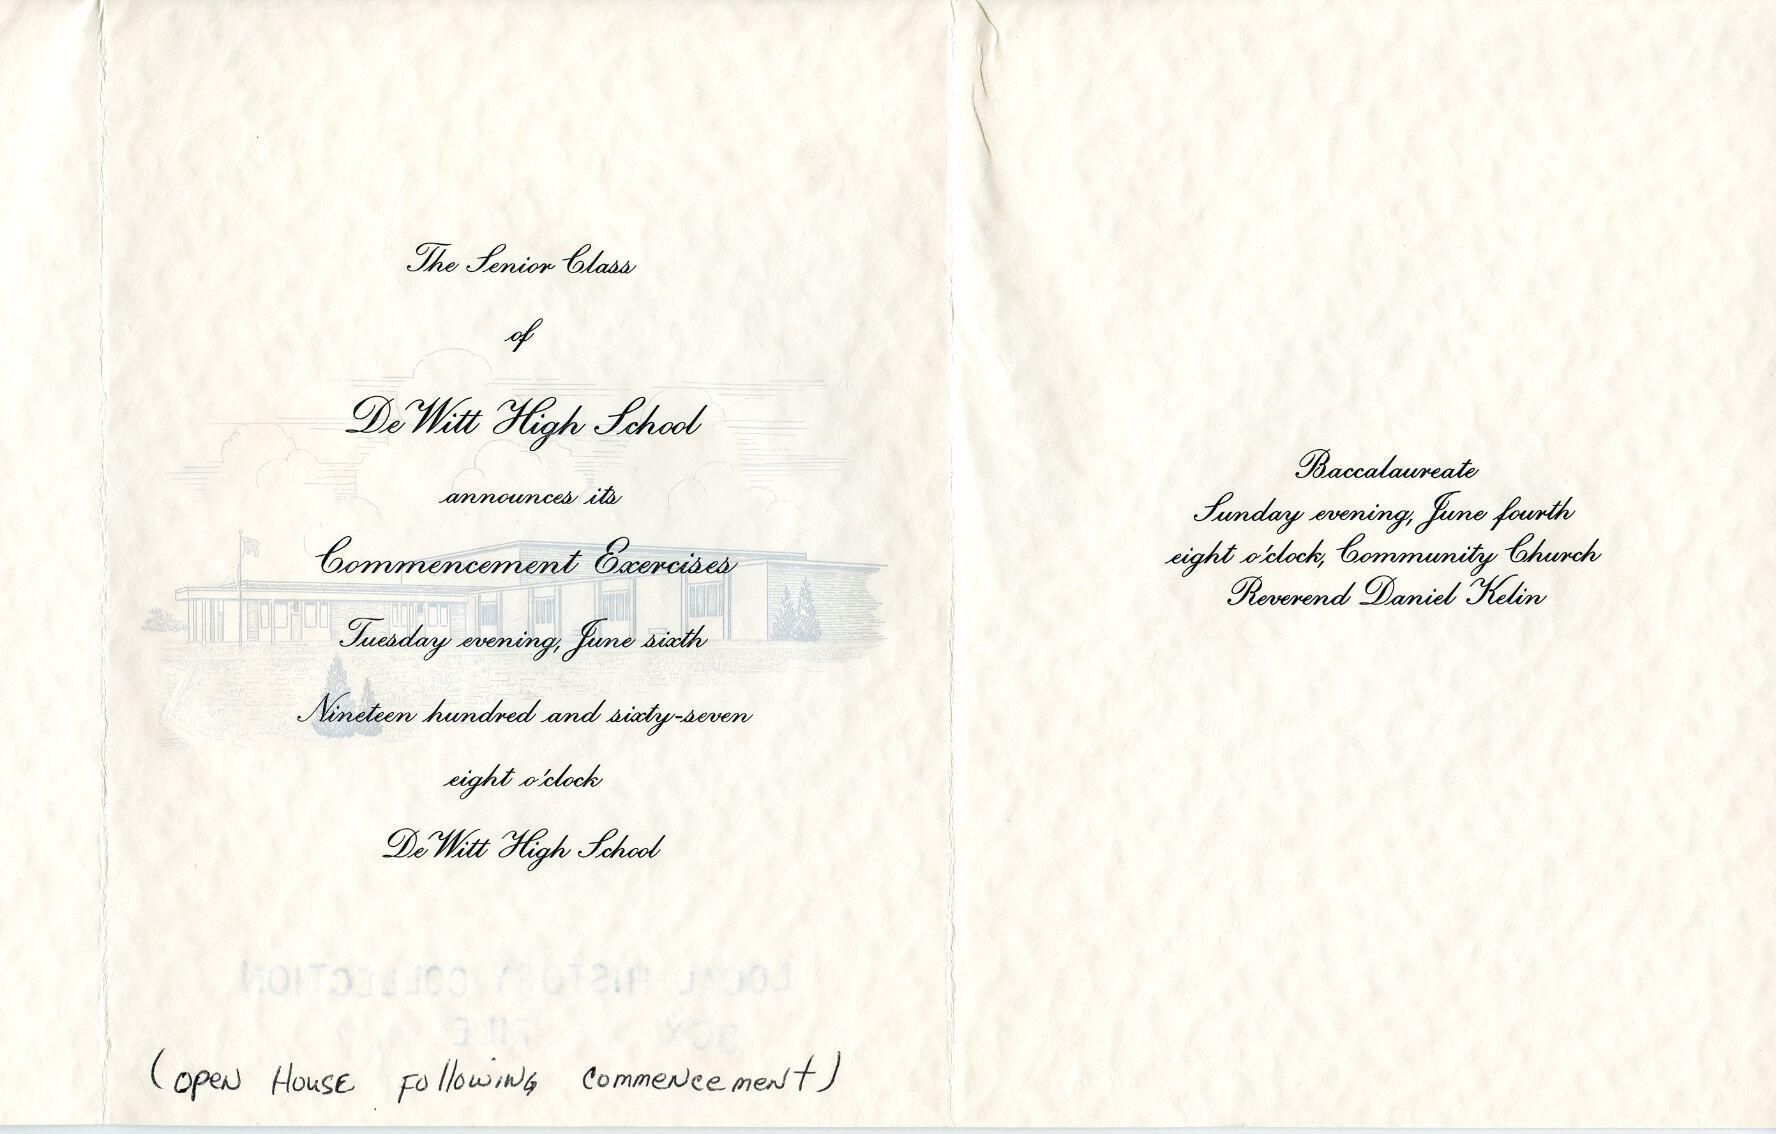 The Senior Class
of
DeWitt High School
announces its
Commencement Exercises
Tuesday evening, June sixth
Nineteen hundred and sixty-seven
eight o'clock
DeWitt High School
LOCAL HISTORY COLLECTION
BOX FILE
(OPEN HOUSE FOLLOWING COMMENCEMENT)
Baccalaureate
Sunday evening, June fourth
eight o'clock, Community Church
Reverend Daniel Kelin